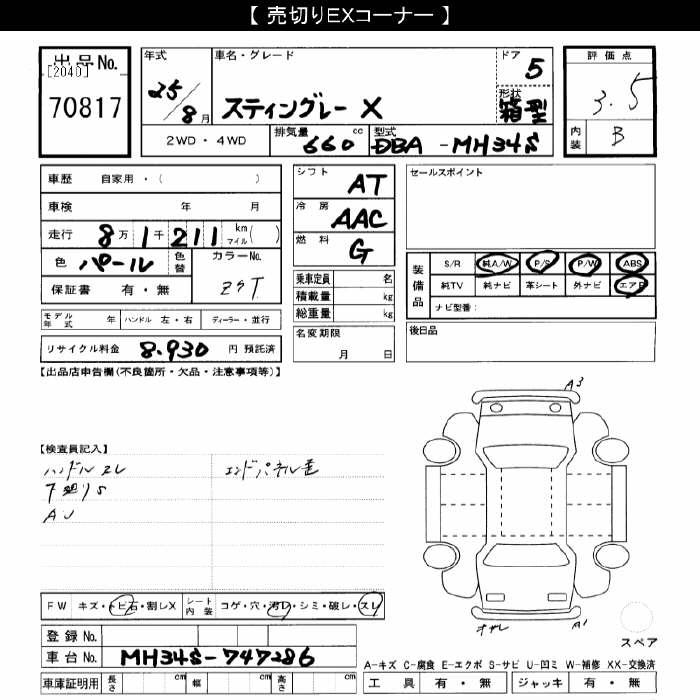 【 売切りEXコーナー 】
出品No. [2040] 70817
年式 25/8月
車名・グレード スティングレー X
ドア 5
形状 箱型
評価点 3.5
内装 B
2WD・4WD
排気量 660cc
型式 DBA-MH34S
車歴 自家用・( )
車検 年 月
走行 8万1千211 km マイル( )
色 パール 色替 カラーNo. Z7T
保証書 有・無
モデル年式 年 ハンドル 左・右 ディーラー・並行
リサイクル料金 8.930 円 預託済
シフト AT
冷房 AAC
燃料 G
乗車定員 名
積載量 kg
総重量 kg
名変期限 月 日
セールスポイント
装備品 S/R 純A/W P/S P/W ABS
純TV 純ナビ 革シート 外ナビ エアB
ナビ型番:
後日品
【出品店申告欄(不良箇所・欠品・注意事項等)】
【検査員記入】
ハンドルスレ エンドパネル歪
下廻りS
AU
A3
オサレ A1
スペア
FW キズ・トビ石・割レX シート内装 コゲ・穴・汚レ・シミ・破レ・スレ
登録No.
車台No. MH34S-747286
車庫証明用 長さ cm 幅 cm 高さ cm
A-キズ C-腐食 E-エクボ S-サビ U-凹ミ W-補修 XX-交換済
工具 有・無 ジャッキ 有・無